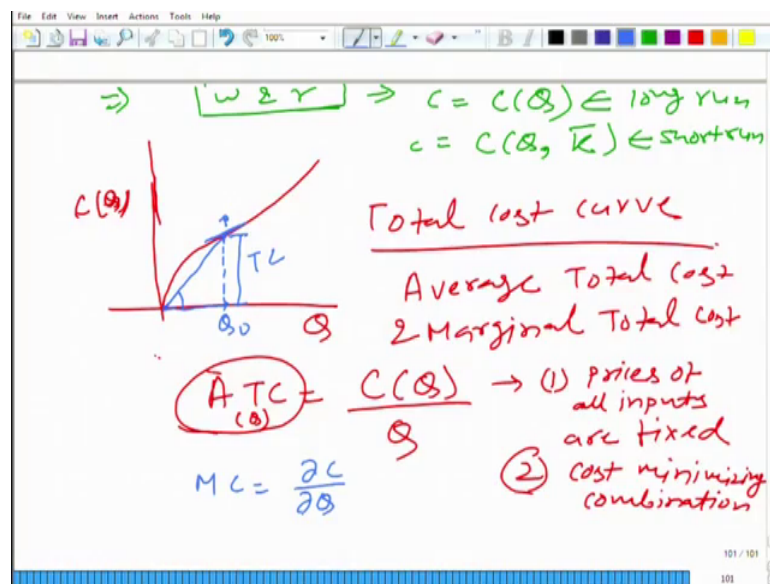 File Edit View Insert Actions Tools Help
100%
⇒ w & r ⇒ C = C(Q) ∈ long run
c = C(Q, K̅) ∈ short run
C(Q)
Total cost curve
TC
Average Total cost
& Marginal Total cost
Q0 Q
ATC = C(Q) / Q → (1) prices of
(Q) all inputs
are fixed
MC = ∂C / ∂Q (2) cost minimizing
combination
101 / 101
101